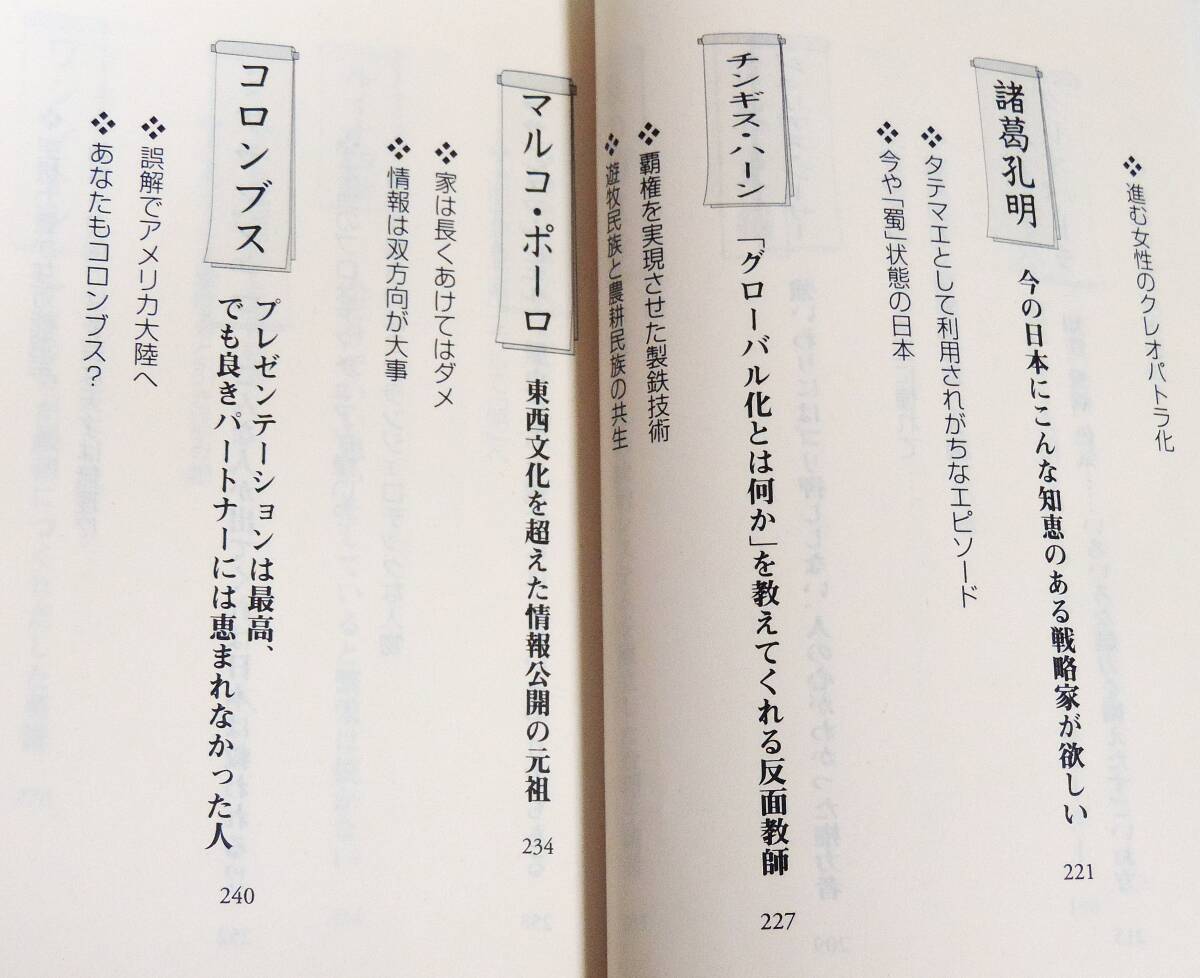 ❖進む女性のクレオパトラ化
諸葛孔明
今の日本にこんな知恵のある戦略家が欲しい
221
❖タテマエとして利用されがちなエピソード
❖今や「蜀」状態の日本
チンギス・ハーン
「グローバル化とは何か」を教えてくれる反面教師
227
❖覇権を実現させた製鉄技術
❖遊牧民族と農耕民族の共生
マルコ・ポーロ
東西文化を超えた情報公開の元祖
234
❖家は長くあけてはダメ
❖情報は双方向が大事
コロンブス
プレゼンテーションは最高、
でも良きパートナーには恵まれなかった人
240
❖誤解でアメリカ大陸へ
❖あなたもコロンブス？